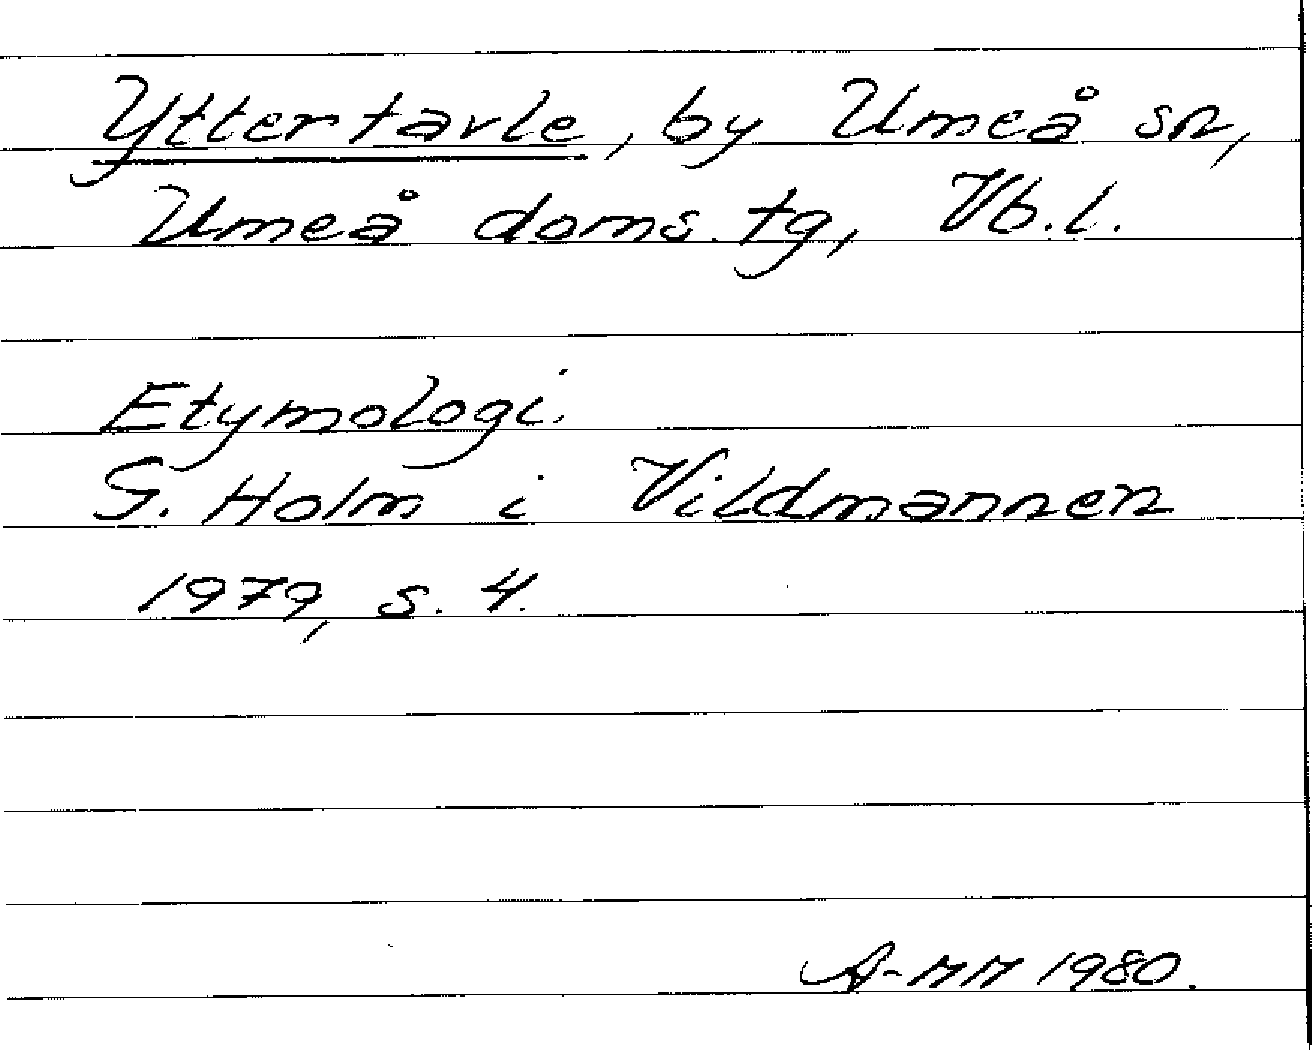 Yttertavle, by Umeå sn,
Umeå doms.tg, Vb.l.
Etymologi.
G. Holm i Vildmannen
1979, s. 4.
A-MM 1980.